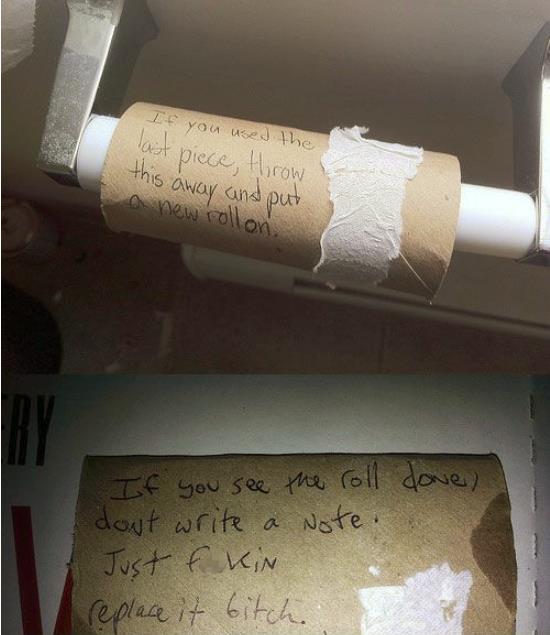 If you used the
last piece, throw
this away and put
a new roll on.
ERY
If you see the roll done,
dont write a note.
Just f kin
replace it bitch.